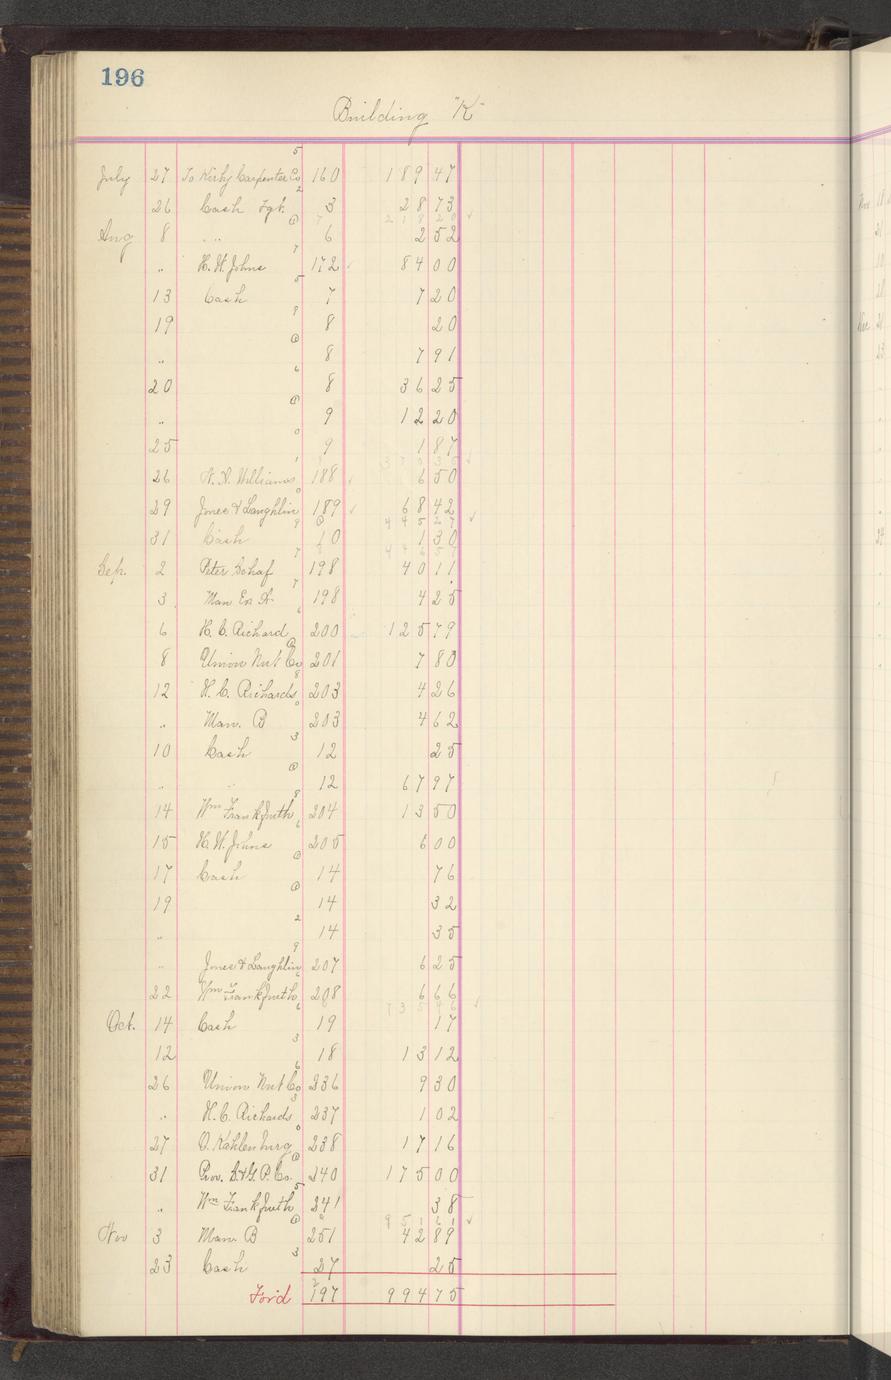 196
Building "K"
July 27 To Kirby Carpenter Co 5 160 189 47
26 Cash Fgt. 2 3 28 73
218 20 ✓
Aug 8 " " @ 6 2 52
" H. W. Johns 7 172 ✓ 84 00
13 Cash 5 7 7 20
19 9 8 20
" @ 8 7 91
20 6 8 36 25
" @ 9 12 20
25 0 9 1 87
370 35 ✓
26 Williams 1 188 ✓ 6 50
29 Jones & Laughlin 0 189 ✓ 68 42
445 27 ✓
31 Cash 9 10 1 30
446 57
Sep. 2 Peter Schaf 7 198 40 11
3 Man Ex A. 7 198 4 25
6 H. C. Richard 6 200 125 79
8 Union Nut Co @ 201 7 80
12 H. C. Richards 8 203 4 26
" Man. B 0 203 4 62
10 Cash 3 12 25
" " @ 12 67 97
14 Wm Frankfurth 8 204 13 50
15 H. W. Johns 6 205 6 00
17 Cash @ 14 76
19 @ 14 32
" 2 14 35
" Jones & Laughlin 9 207 6 25
22 Wm Frankfurth 6 208 6 66
735 46 ✓
Oct. 14 Cash 6 19 17
12 3 18 13 12
26 Union Nut Co 6 236 9 30
" H. C. Richards 3 237 1 02
27 O. Kahlenburg 0 238 17 16
31 Prov. S. & G. P. Co. @ 240 175 00
" Wm Frankfurth 5 241 38
951 61 ✓
Nov 3 Man B @ 251 42 89
23 Cash 3 27 25
Ford 197 994 75